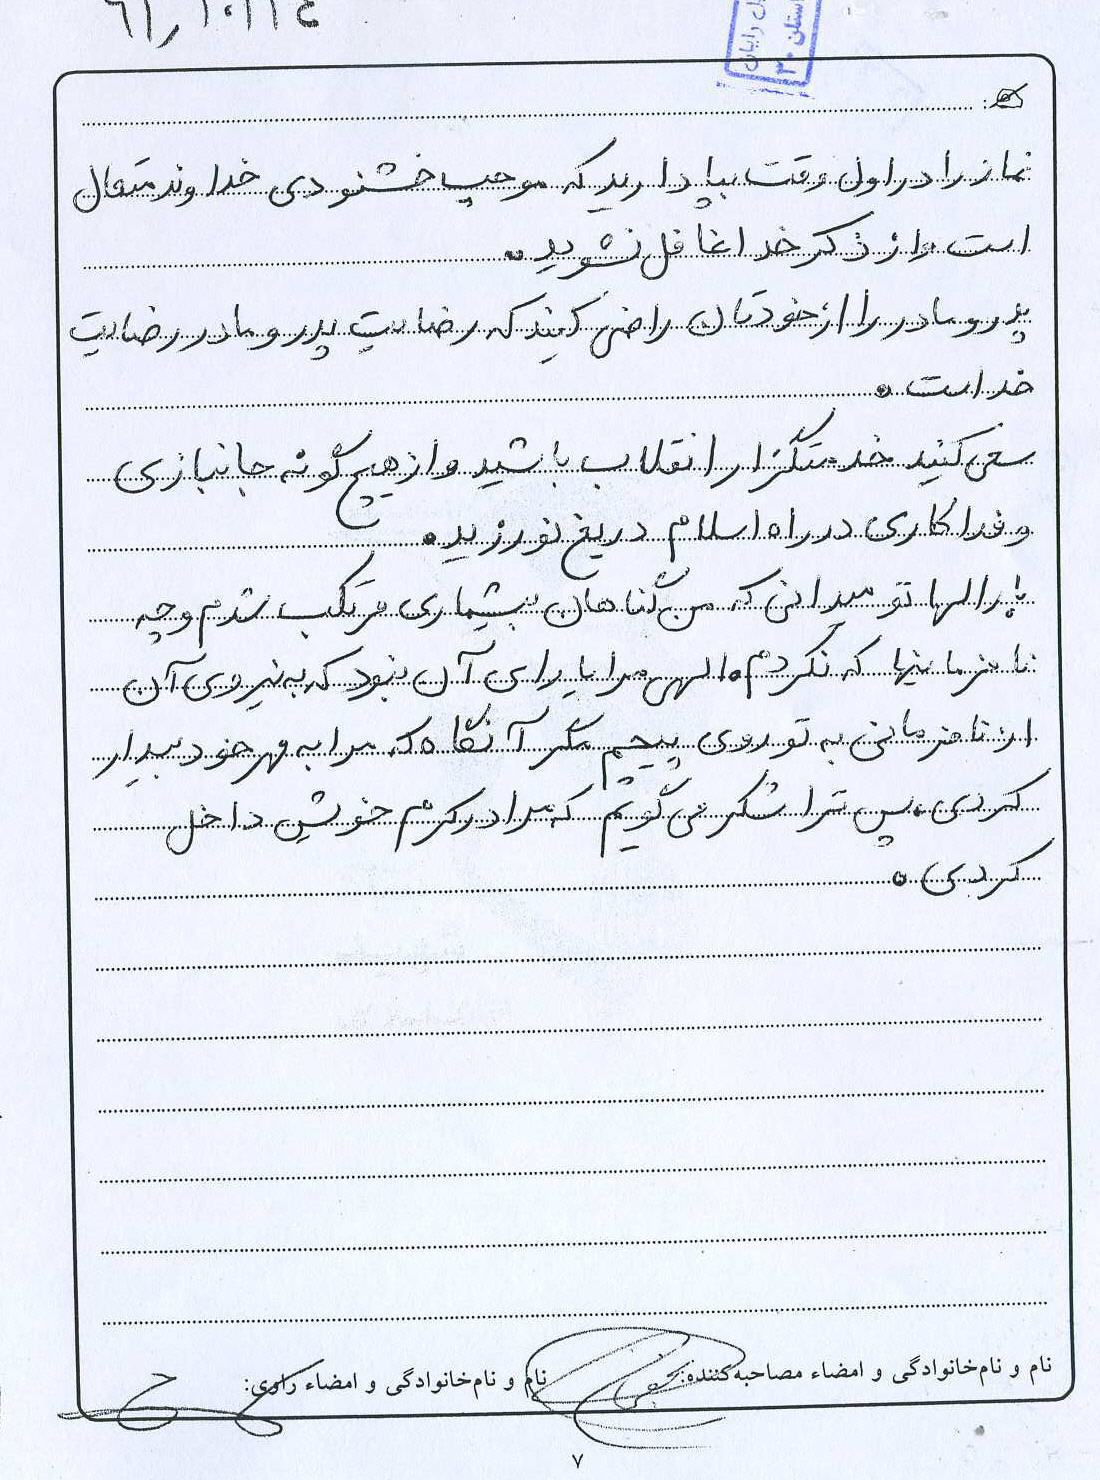 نماز را در اول وقت بپا دارید که موجب خشنودی خداوند متعال
است و از ذکر خدا غافل نشوید.
پدر و مادر را از خودتان راضی کنید که رضایت پدر و مادر رضایت
خداست.
سعی کنید خدمتگزار انقلاب باشید و از هیچ گونه جانبازی
و فداکاری در راه اسلام دریغ نورزید.
بارالها تو میدانی که من گناهان بیشماری مرتکب شدم و چه
نافرمانیها که نکردم. الهی مرا یارای آن نبود که به نیروی آن
از نافرمانی به تو روی پیچم مگر آنگاه که مرا به مهر خود بیدار
کردی. پس ترا شکر می گویم که مرا در کرم خویش داخل
کردی.
نام و نام‌خانوادگی و امضاء مصاحبه‌کننده: نام و نام‌خانوادگی و امضاء راوی:
۷